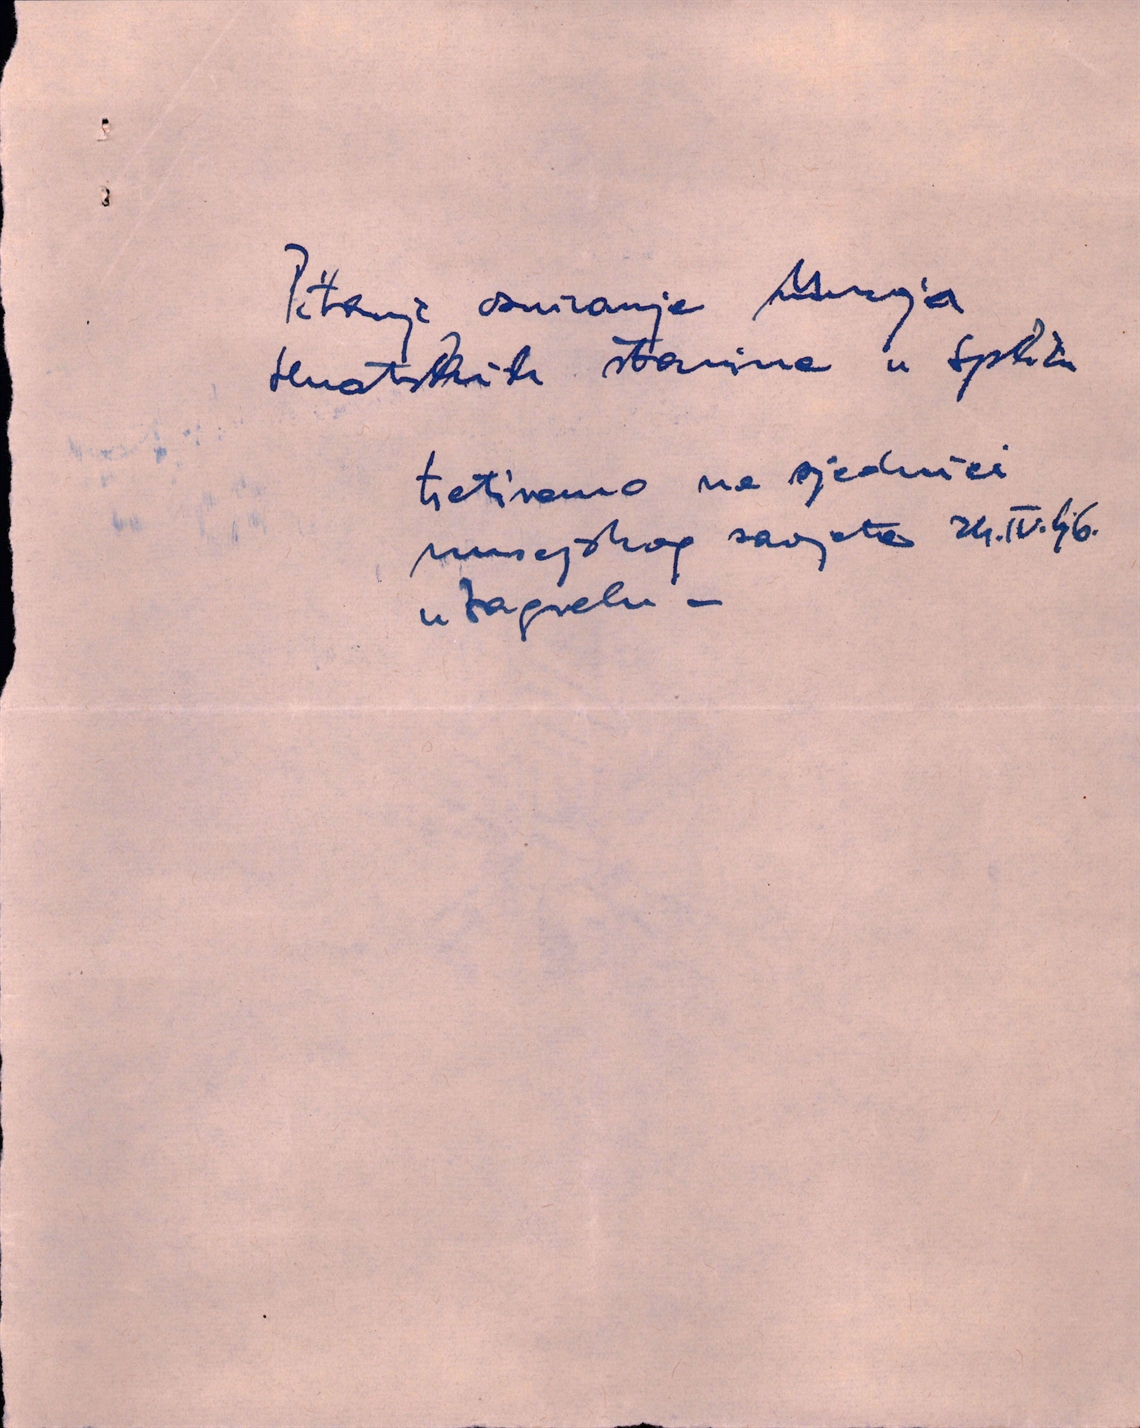 Pitanje osnivanja Muzeja
Hrvatskih starina u Splitu
tretirano na sjednici
muzejskog savjeta 24.IV.
u Zagrebu –